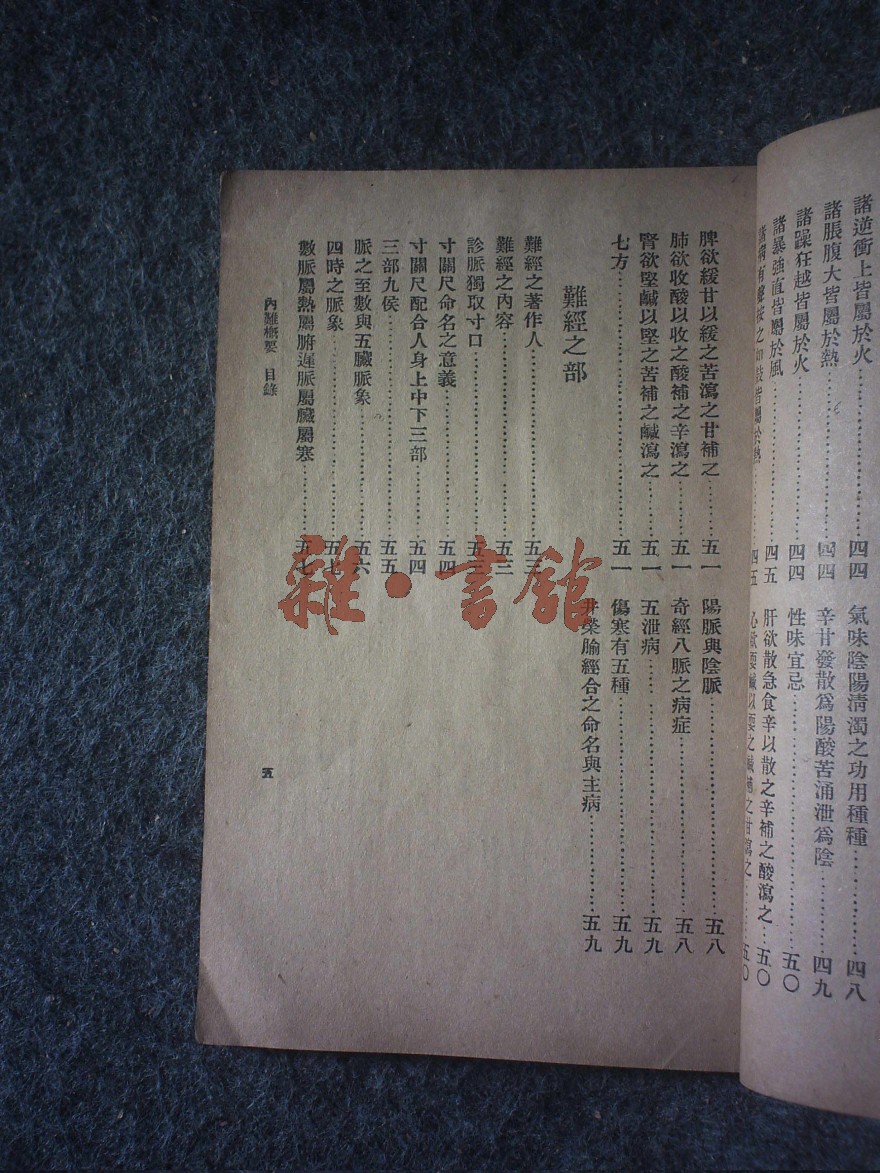 諸逆衝上皆屬於火……四四
諸脹腹大皆屬於熱……四四
諸躁狂越皆屬於火……四四
諸暴强直皆屬於風……四五
諸病有聲按之如鼓皆屬於熱……四五
氣味陰陽清濁之功用種種……四八
辛甘發散爲陽酸苦涌泄爲陰……四九
性味宜忌……五〇
肝欲散急食辛以散之辛補之酸瀉之……五〇
心欲耎鹹以耎之鹹補之甘瀉之……五〇
脾欲緩甘以緩之苦瀉之甘補之……五一
肺欲收酸以收之酸補之辛瀉之……五一
腎欲堅鹹以堅之苦補之鹹瀉之……五一
七方……五一
難經之部
難經之著作人……五三
難經之內容……五三
診脈獨取寸口……五三
寸關尺命名之意義……五四
寸關尺配合人身上中下三部……五四
三部九侯……五五
脈之至數與五臟脈象……五六
四時之脈象……五七
數脈屬熱屬腑遲脈屬臟屬寒……五七
陽脈與陰脈……五八
奇經八脈之病症……五八
五泄病……五九
傷寒有五種……五九
井榮腧經合之命名與主病……五九
內難概要 目錄
五
雜·書館